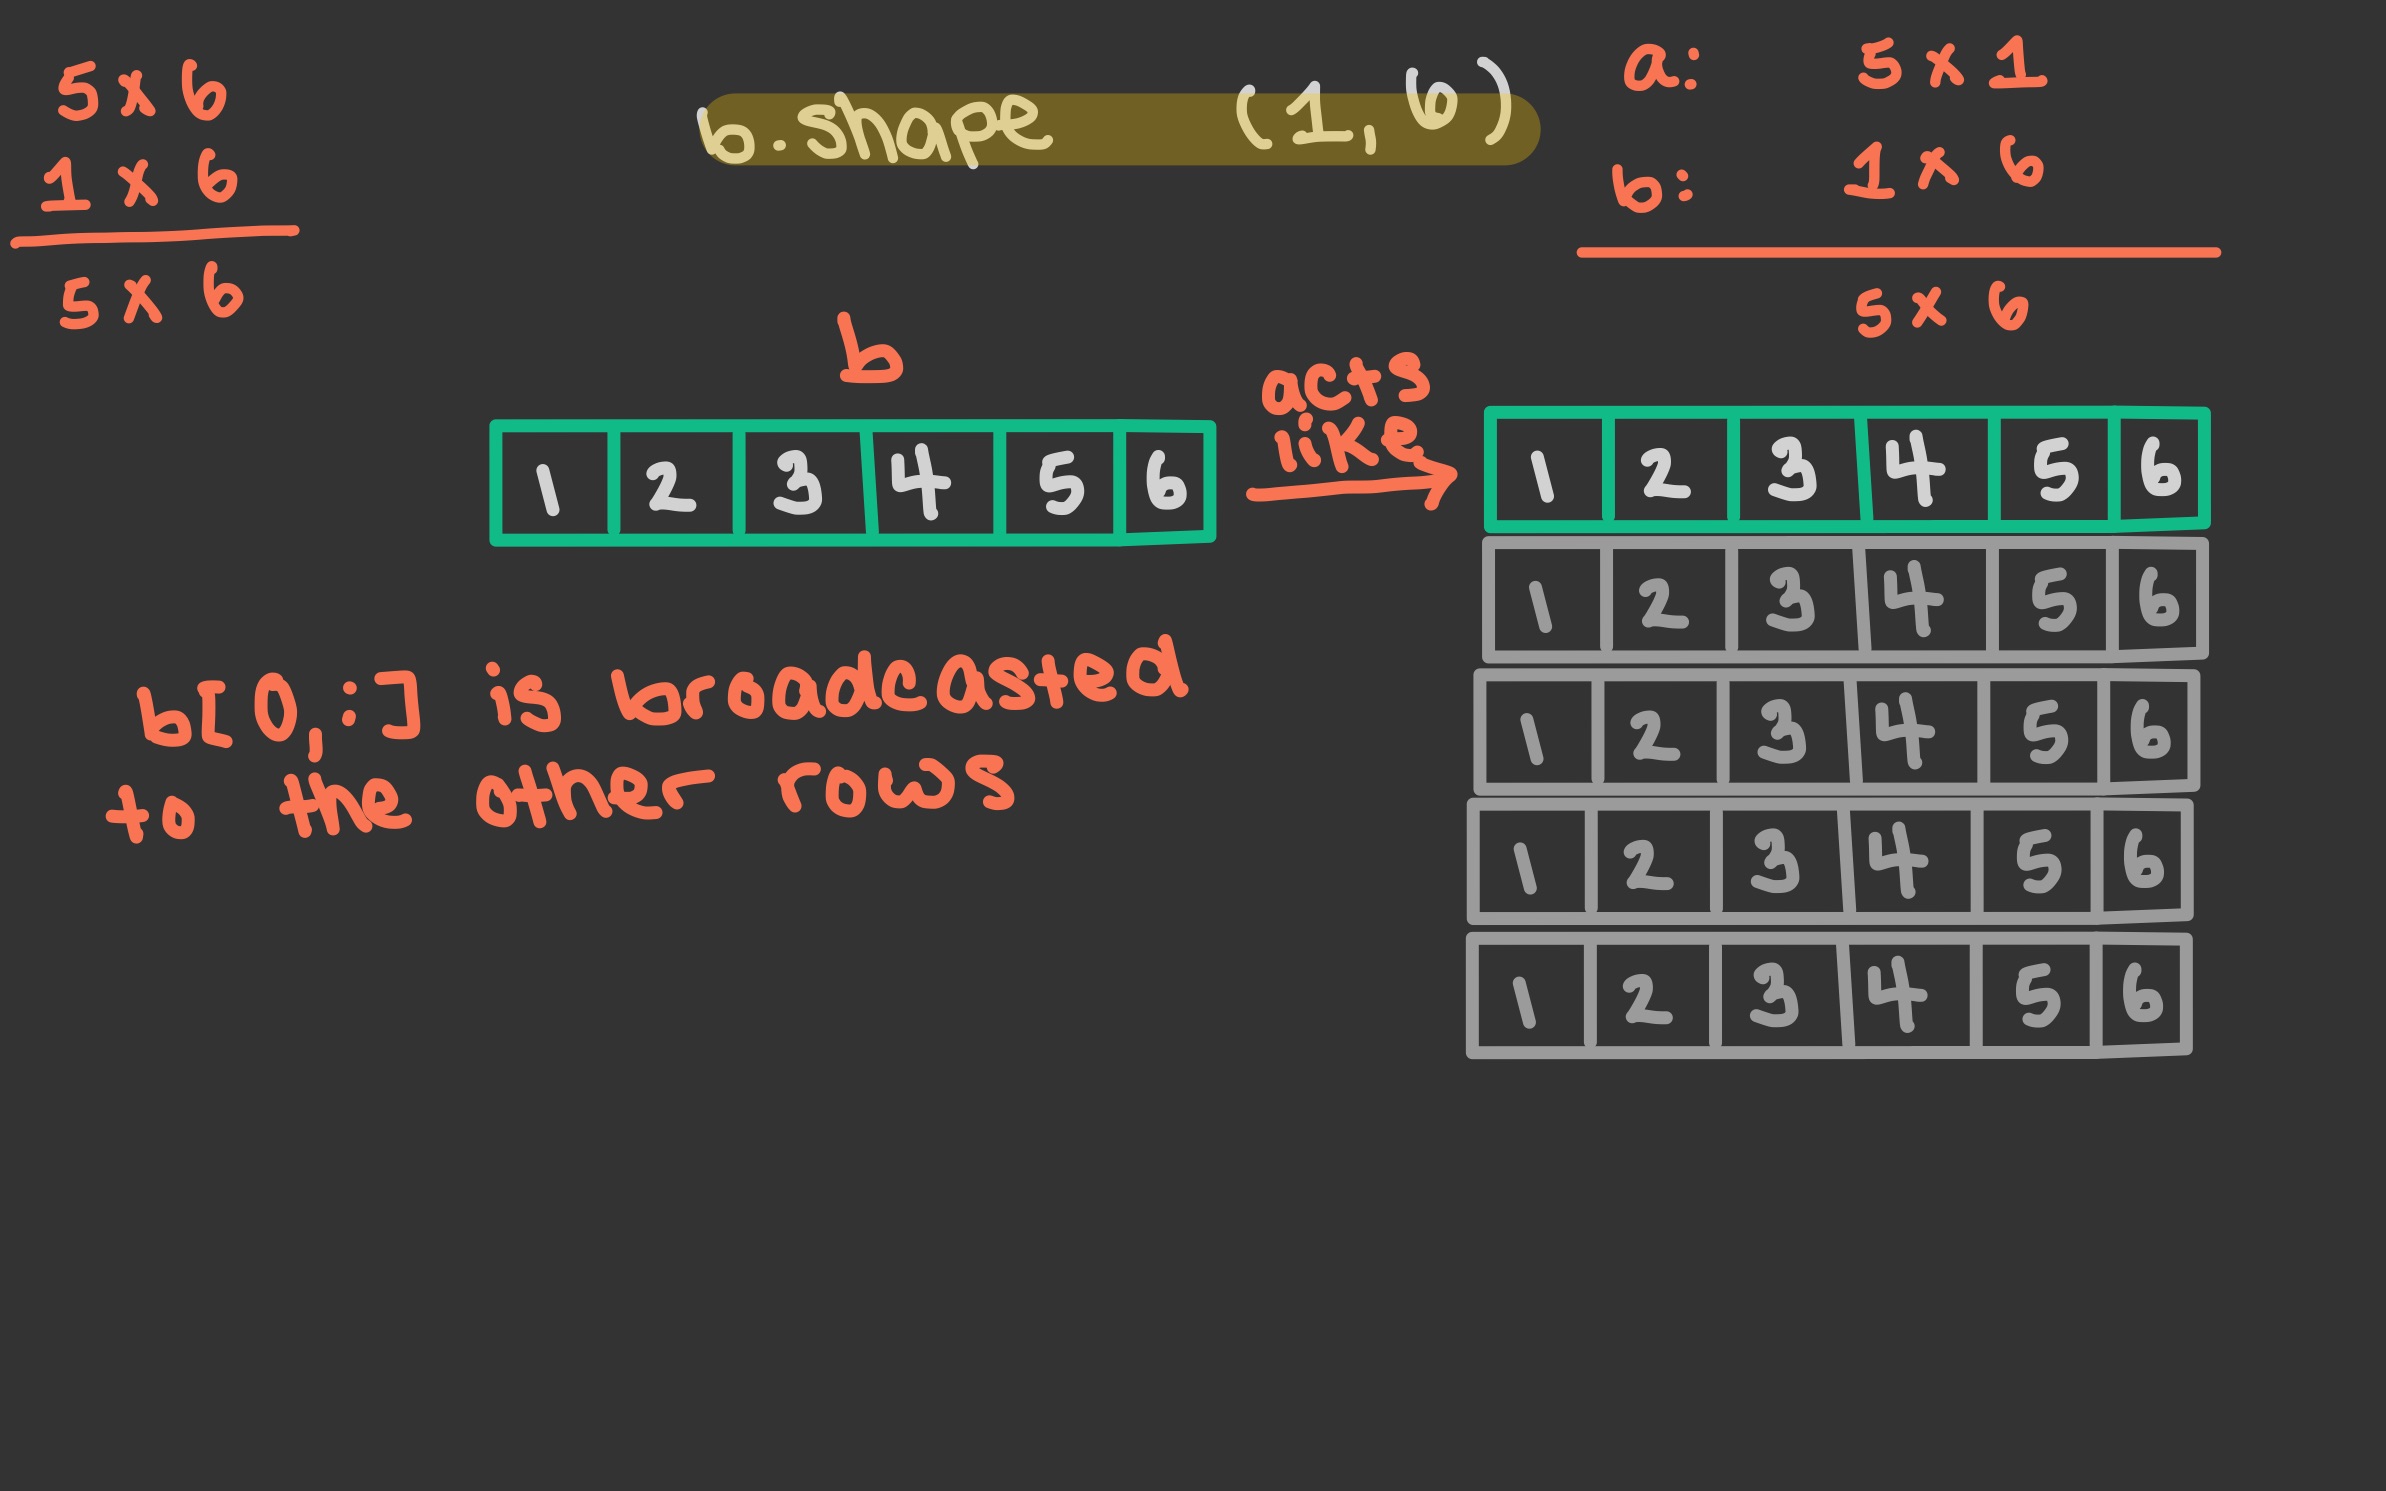 5 x 6
1 x 6
5 x 6
b.shape (1, 6)
a: 5 x 1
b: 1 x 6
5 x 6
b
1 2 3 4 5 6
acts
like
1 2 3 4 5 6
1 2 3 4 5 6
1 2 3 4 5 6
1 2 3 4 5 6
1 2 3 4 5 6
b[0,:] is broadcasted
to the other rows